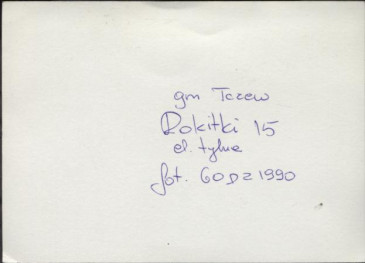 gm Tczew
Rokitki 15
el. tylna
fot. GODZ 1990